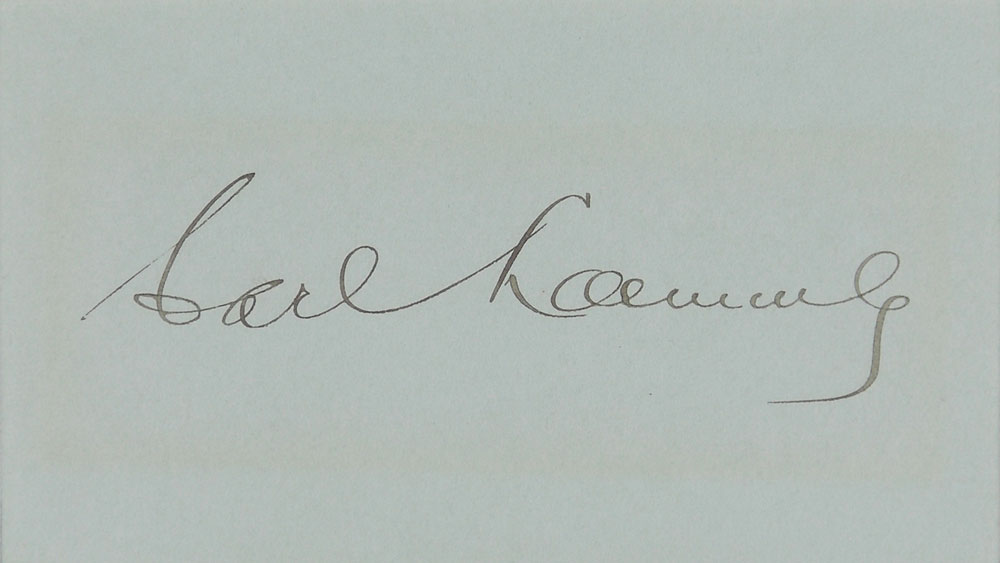 Carl Laemmle